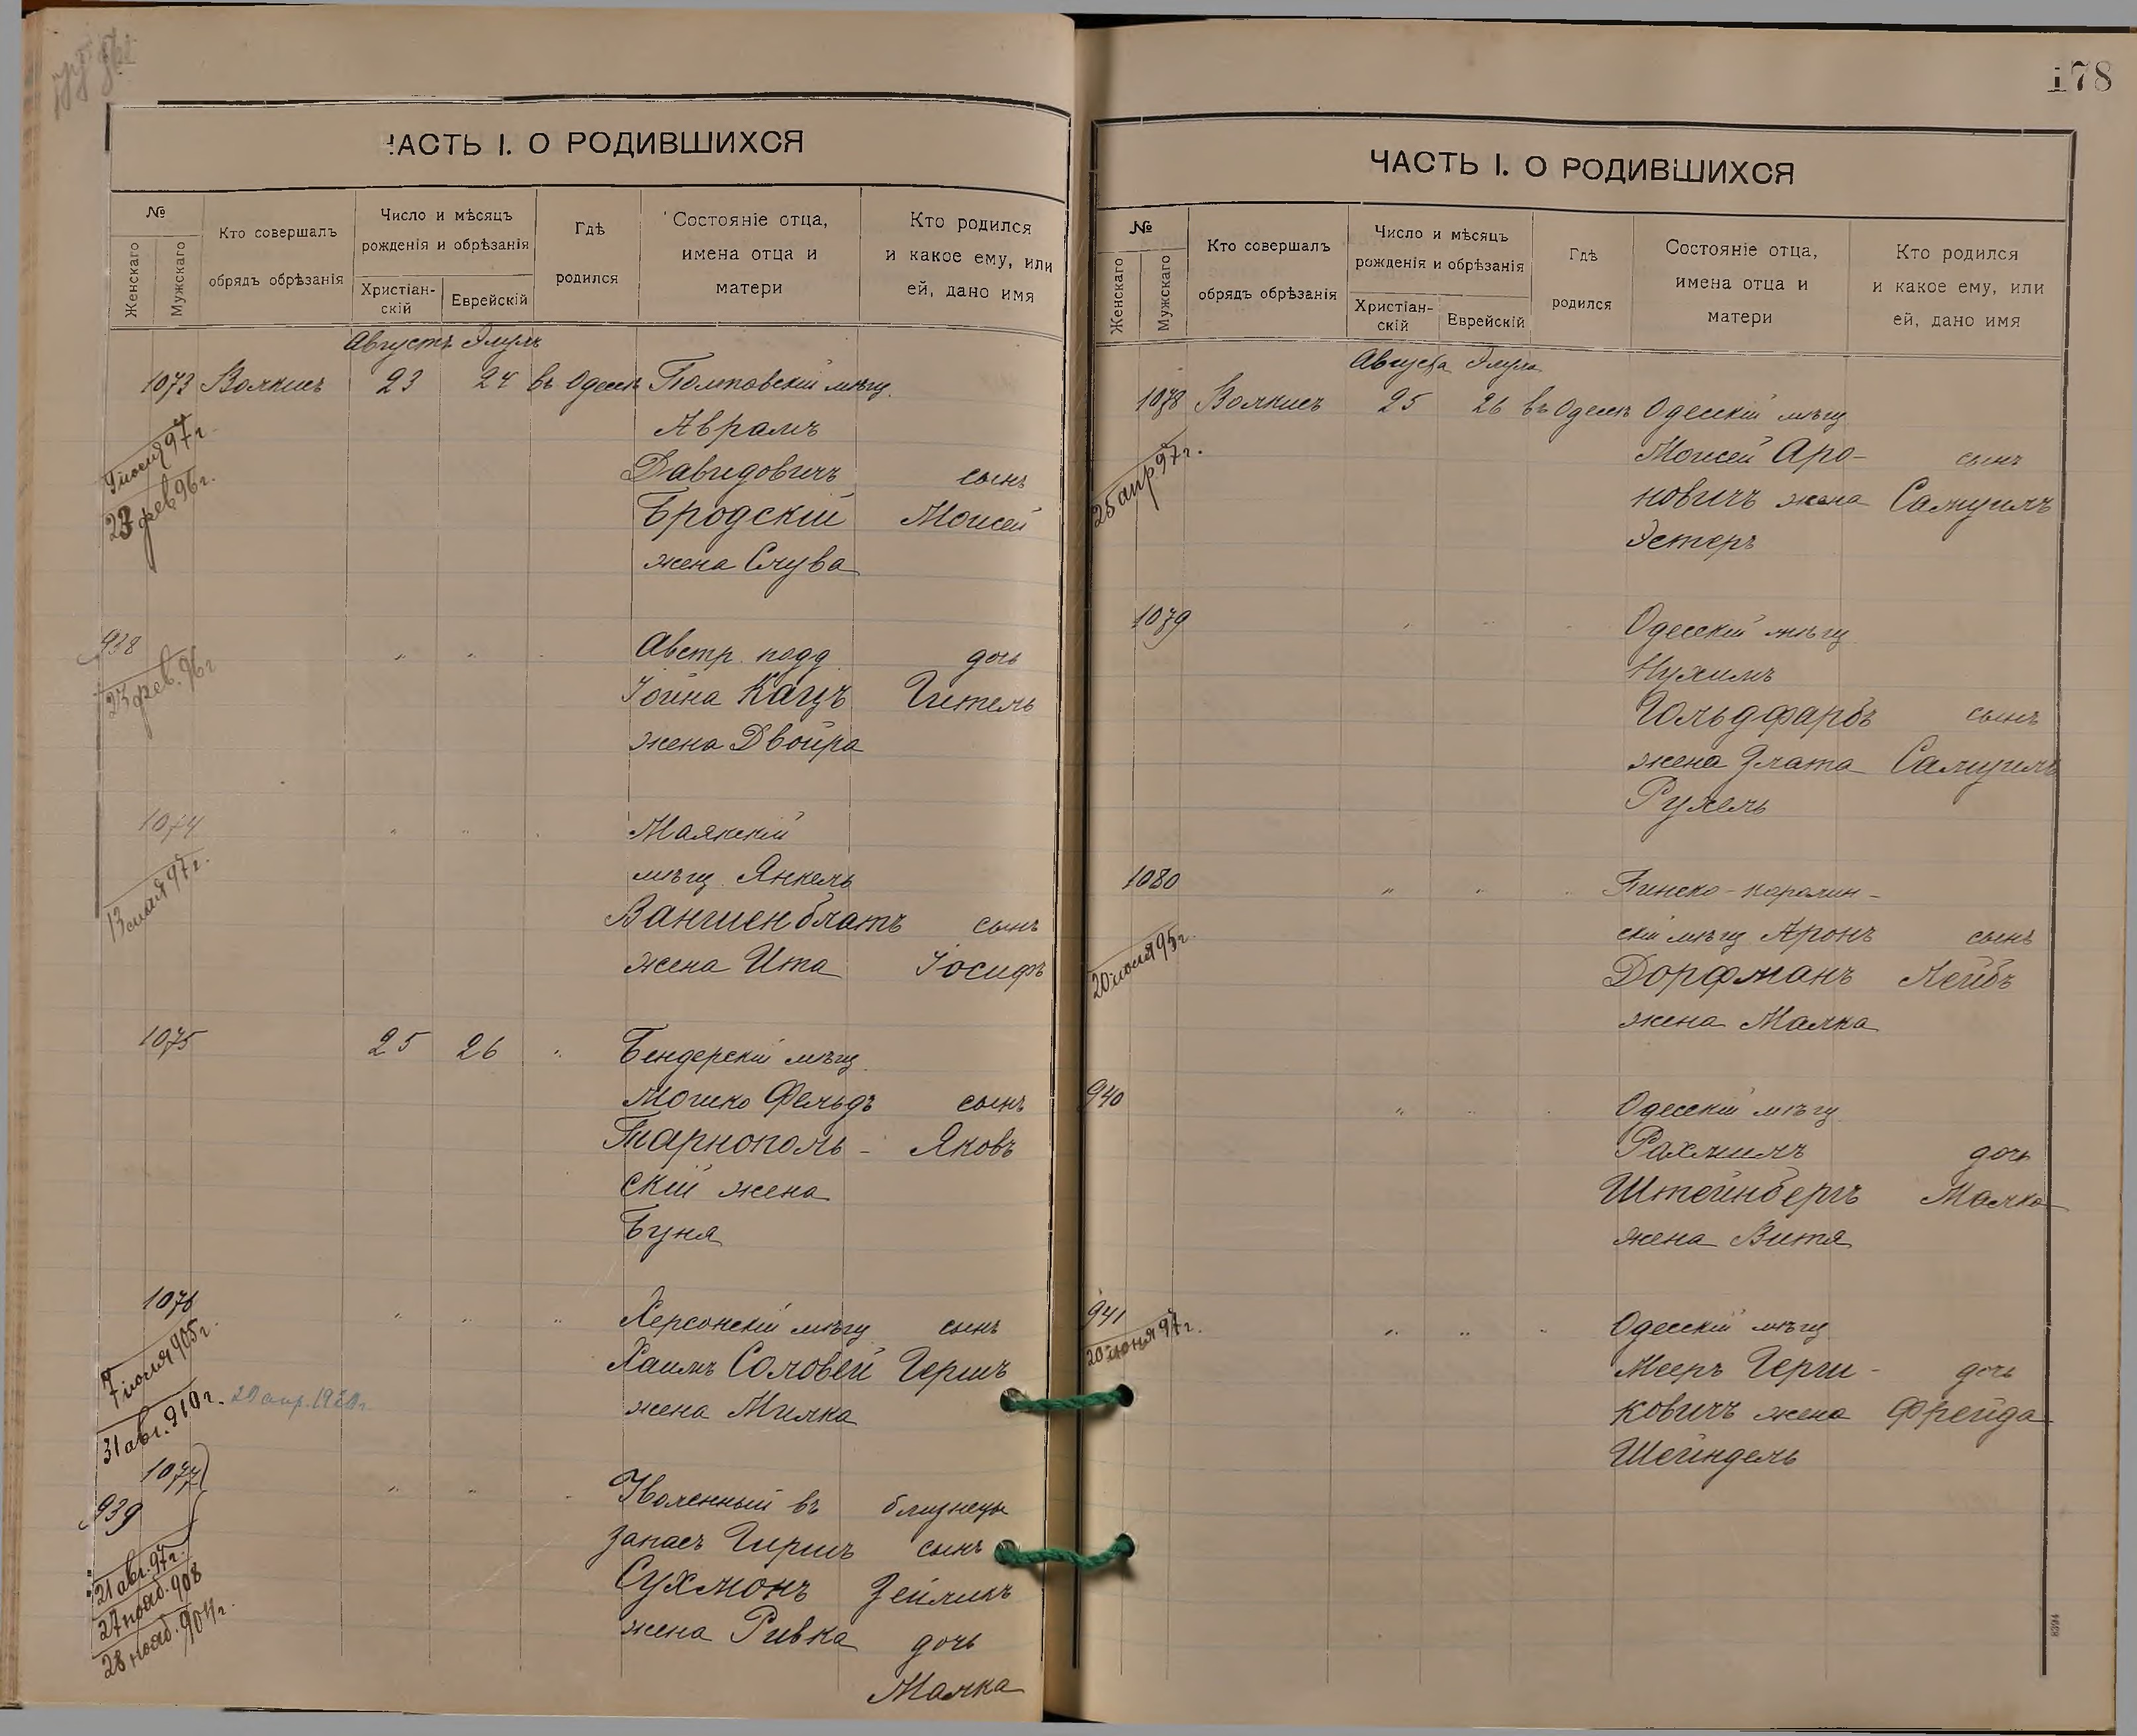 ЧАСТЬ I. О РОДИВШИХСЯ
№
Женскаго
Мужскаго
Кто совершалъ
обрядъ обрѣзанія
Число и мѣсяцъ
рожденія и обрѣзанія
Христіан-
скій
Еврейскій
Гдѣ
родился
Состояніе отца,
имена отца и
матери
Кто родился
и какое ему, или
ей, дано имя
Августъ Элулъ
1073 Волкисъ 23 24 въ Одессѣ Полтовскій мѣщ.
Аврамъ
9 іюля 97 г.
Давидовичъ сынъ
23 фев 96 г.
Бродскій Моисей
жена Слува
938 " " Австр. подд. дочь
23 фев. 96 г
Іойна Кацъ Гитель
жена Двойра
1074 " " Маякскій
мѣщ. Янкель
13 мая 97 г.
Вангменблатъ сынъ
жена Ита Іосифъ
1075 25 26 " Бендерскій мѣщ.
Мошко Фельдъ сынъ
Тарнополь- Яковъ
скій жена
Буня
1076 " " " Херсонскій мѣщ сынъ
7 іюля 905 г.
Хаимъ Соловей Гершъ
31 авг. 910 г. 20 апр. 1920 г
жена Милка
1077
939 " " Уволенный въ близнецы
запасъ Гиршъ сынъ
21 авг. 97 г.
Сухмонъ Зейликъ
27 нояб. 908
жена Ривка дочь
28 нояб. 904 г.
Малка
178
ЧАСТЬ I. О РОДИВШИХСЯ
№
Женскаго
Мужскаго
Кто совершалъ
обрядъ обрѣзанія
Число и мѣсяцъ
рожденія и обрѣзанія
Христіан-
скій
Еврейскій
Гдѣ
родился
Состояніе отца,
имена отца и
матери
Кто родился
и какое ему, или
ей, дано имя
Августа Элула
1078 Волкисъ 25 26 въ Одессѣ Одесскій мѣщ
25 апр 97 г.
Моисей Аро- сынъ
новичъ жена Самуилъ
Эстеръ
1079 " " Одесскій мѣщ
Нухимъ
Гольдфарбъ сынъ
жена Злата Самуилъ
Рухель
1080 " " Пинско-каролин-
20 іюля 95 г.
скій мѣщ Аронъ сынъ
Дорфманъ Лейбъ
жена Малка
940 " " Одесскій мѣщ.
Рахмилъ дочь
Штейнбергъ Малка
жена Витя
941 " " " Одесскій мѣщ
20 іюня 97 г.
Мееръ Герш- дочь
ковичъ жена Фрейда
Шейндель